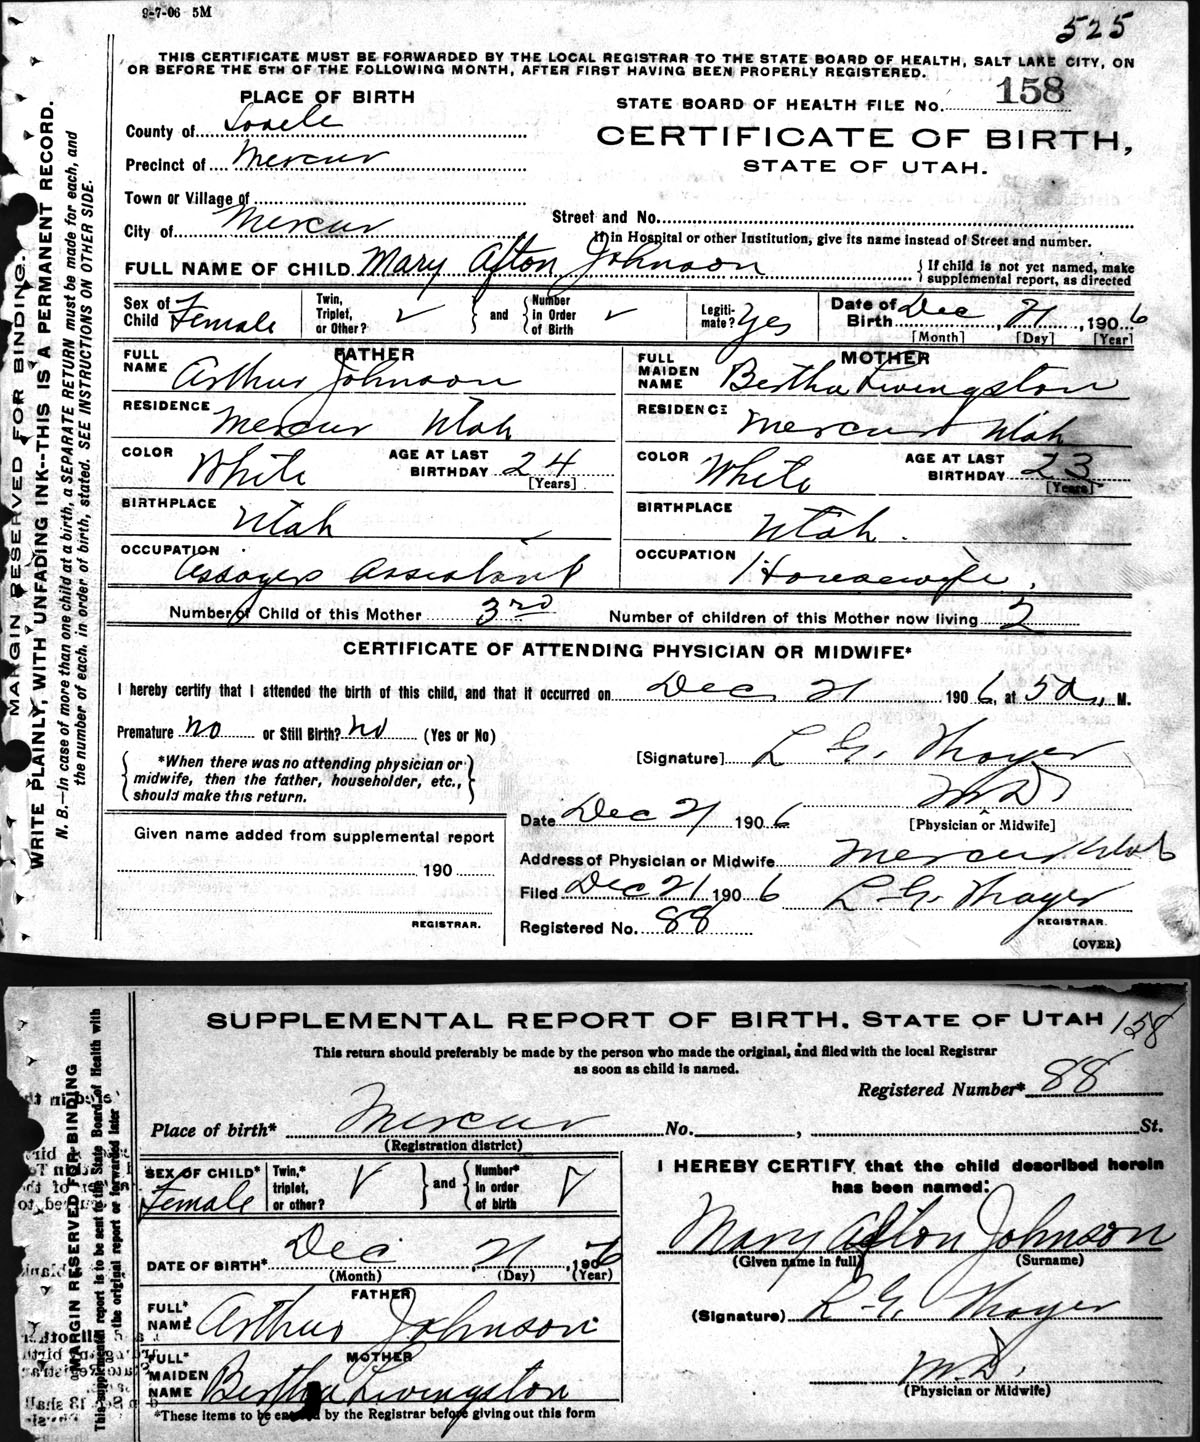 9-7-06 5M
525
THIS CERTIFICATE MUST BE FORWARDED BY THE LOCAL REGISTRAR TO THE STATE BOARD OF HEALTH, SALT LAKE CITY, ON
OR BEFORE THE 5TH OF THE FOLLOWING MONTH, AFTER FIRST HAVING BEEN PROPERLY REGISTERED.
PLACE OF BIRTH
STATE BOARD OF HEALTH FILE No. 158
County of Tooele
CERTIFICATE OF BIRTH,
Precinct of Mercur
STATE OF UTAH.
Town or Village of
Street and No.
City of Mercur
If in Hospital or other Institution, give its name instead of Street and number.
FULL NAME OF CHILD Mary Afton Johnson
{ If child is not yet named, make
supplemental report, as directed
Sex of Child Female
Twin, Triplet, or Other? ✓ } and { Number in Order of Birth ✓
Legiti-mate? Yes
Date of Birth Dec 21, 1906
[Month] [Day] [Year]
FATHER
FULL NAME Arthur Johnson
RESIDENCE Mercur Utah
COLOR White AGE AT LAST BIRTHDAY 24
[Years]
BIRTHPLACE Utah
OCCUPATION Assayers Assistant
MOTHER
FULL MAIDEN NAME Bertha Livingston
RESIDENCE Mercur Utah
COLOR White AGE AT LAST BIRTHDAY 23
[Years]
BIRTHPLACE Utah.
OCCUPATION Housewife.
Number of Child of this Mother 3rd Number of children of this Mother now living 2
CERTIFICATE OF ATTENDING PHYSICIAN OR MIDWIFE*
I hereby certify that I attended the birth of this child, and that it occurred on Dec, 21 1906, at 5 a., M.
Premature no or Still Birth? no (Yes or No)
*When there was no attending physician or
midwife, then the father, householder, etc.,
should make this return.
[Signature] L G. Thayer
M.D.
[Physician or Midwife]
Date Dec 21 1906
Given name added from supplemental report
190
REGISTRAR.
Address of Physician or Midwife Mercur Utah
Filed Dec 21 1906 L G. Thayer
REGISTRAR.
Registered No. 88
(OVER)
MARGIN RESERVED FOR BINDING.
WRITE PLAINLY, WITH UNFADING INK--THIS IS A PERMANENT RECORD.
N. B.—In case of more than one child at a birth, a SEPARATE RETURN must be made for each, and
the number of each, in order of birth, stated. SEE INSTRUCTIONS ON OTHER SIDE.
SUPPLEMENTAL REPORT OF BIRTH. STATE OF UTAH 158
This return should preferably be made by the person who made the original, and filed with the local Registrar
as soon as child is named.
Registered Number* 88
Place of birth* Mercur No. , St.
(Registration district)
SEX OF CHILD* Female
Twin,* triplet, or other? ✓ } and { Number* in order of birth ✓
DATE OF BIRTH* Dec, 21, 1906
(Month) (Day) (Year)
FATHER
FULL* NAME Arthur Johnson
MOTHER
FULL* MAIDEN NAME Bertha Livingston
*These items to be entered by the Registrar before giving out this form
I HEREBY CERTIFY that the child described herein
has been named:
Mary Afton Johnson
(Given name in full) (Surname)
(Signature) L G. Thayer
M.D.
(Physician or Midwife)
MARGIN RESERVED FOR BINDING
This supplemental report is to be sent to the State Board of Health with
the original report or forwarded later